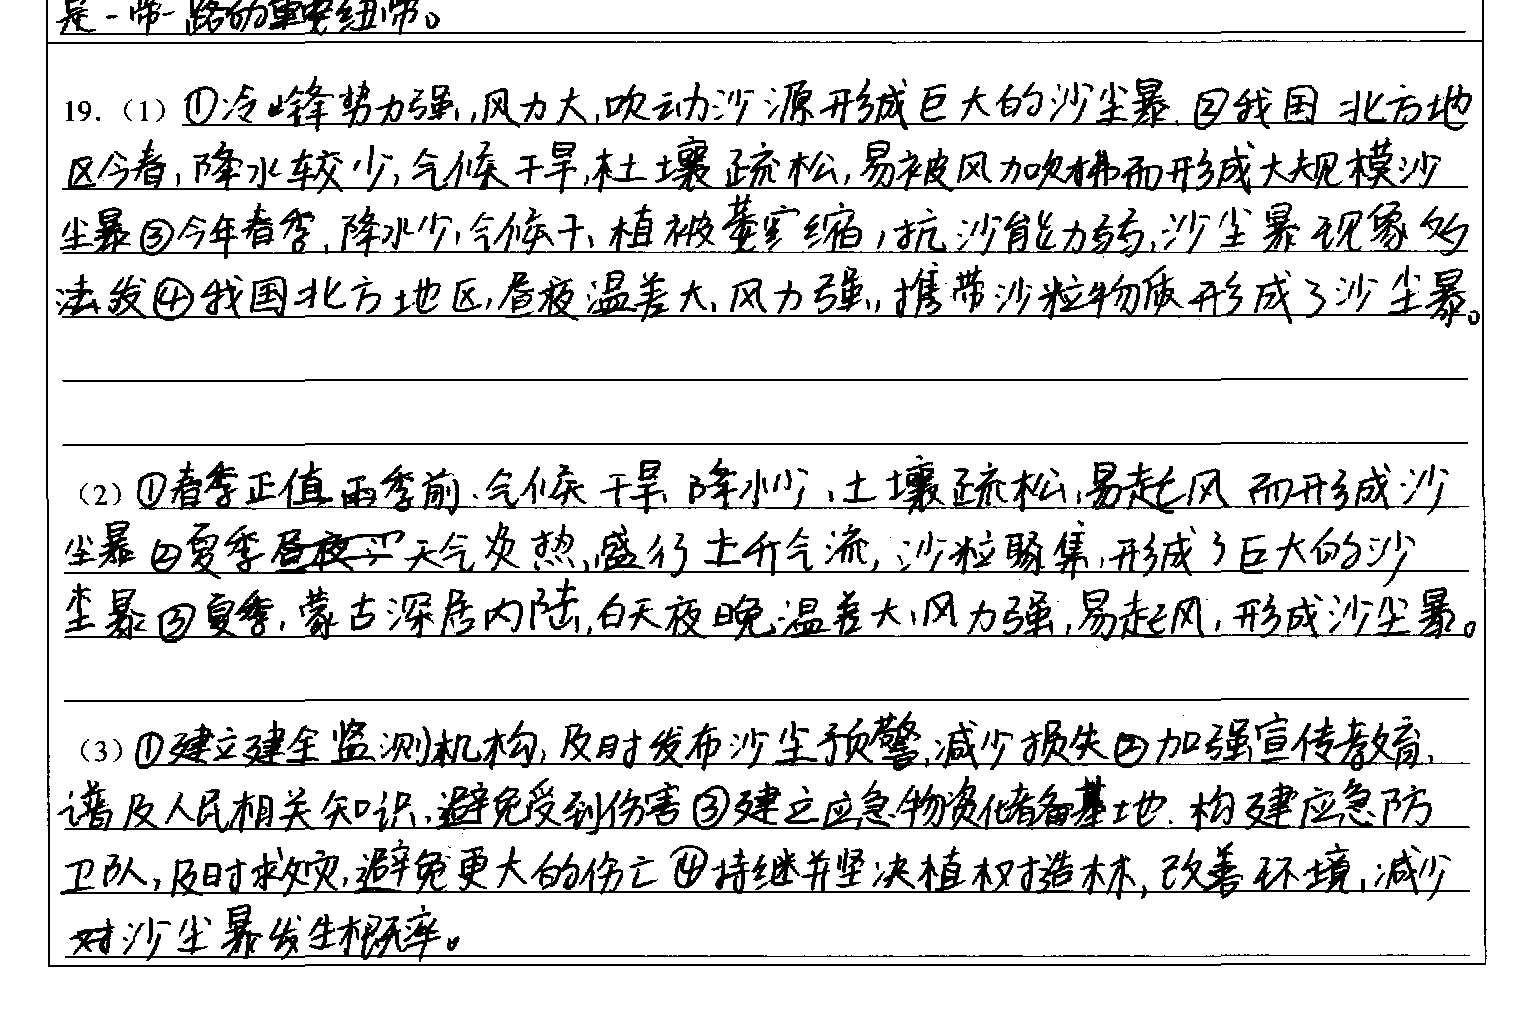 是一带一路的重要纽带。
19.（1）①冷峰势力强,风力大,吹动沙源形成巨大的沙尘暴.②我国北方地
区今春,降水较少,气候干旱,土壤疏松,易被风力吹拂而形成大规模沙
尘暴③今年春季,降水少,气候干,植被萎缩,抗沙能力弱,沙尘暴现象多
发④我国北方地区,昼夜温差大,风力强,携带沙粒物质形成了沙尘暴。
（2）①春季正值雨季前.气候干旱,降水少,土壤疏松,易起风而形成沙
尘暴②夏季天气炎热,盛行上升气流,沙粒聚集,形成了巨大的沙
尘暴③夏季,蒙古深居内陆,白天夜晚温差大,风力强,易起风,形成沙尘暴。
（3）①建立建全监测机构,及时发布沙尘预警,减少损失②加强宣传教育,
谱及人民相关知识,避免受到伤害③建立应急物资储备基地.构建应急防
卫队,及时救灾,避免更大的伤亡④持继并坚决植树造林,改善环境,减少
对沙尘暴发生概率。